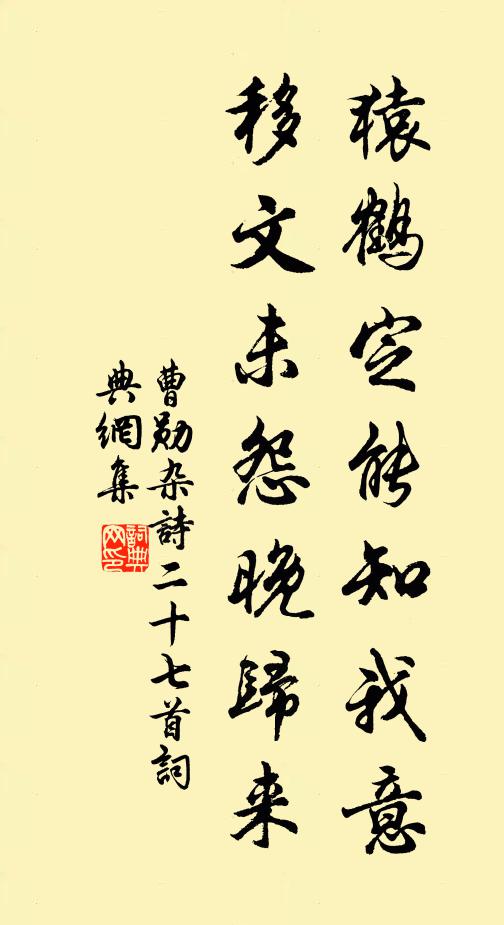 猿鶴定能知我意
移文未怨晚歸来
曹勋杂詩二十七首詞
典網集
詞典
网印